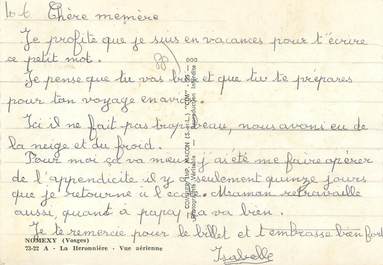 Chère mémère
Je profite que je suis en vacances pour t'écrire
ce petit mot.
Je pense que tu vas bien et que tu te prépares
pour ton voyage en avion.
Ici il ne fait pas trop beau, nous avons eu de
la neige et du froid.
Pour moi ça va mieux, j'ai été me faire opérer
de l'appendicite il y a seulement quinze jours
que je retourne à l'école. Maman retravaille
aussi, quant à papa, ça va bien.
Je te remercie pour le billet et t'embrasse bien fort
Isabelle
NOMEXY (Vosges)
73-22 A - La Héronnière - Vue aérienne
COMBIER IMP. MACON (S.-et-L.) "COM"
Reproduction Interdite